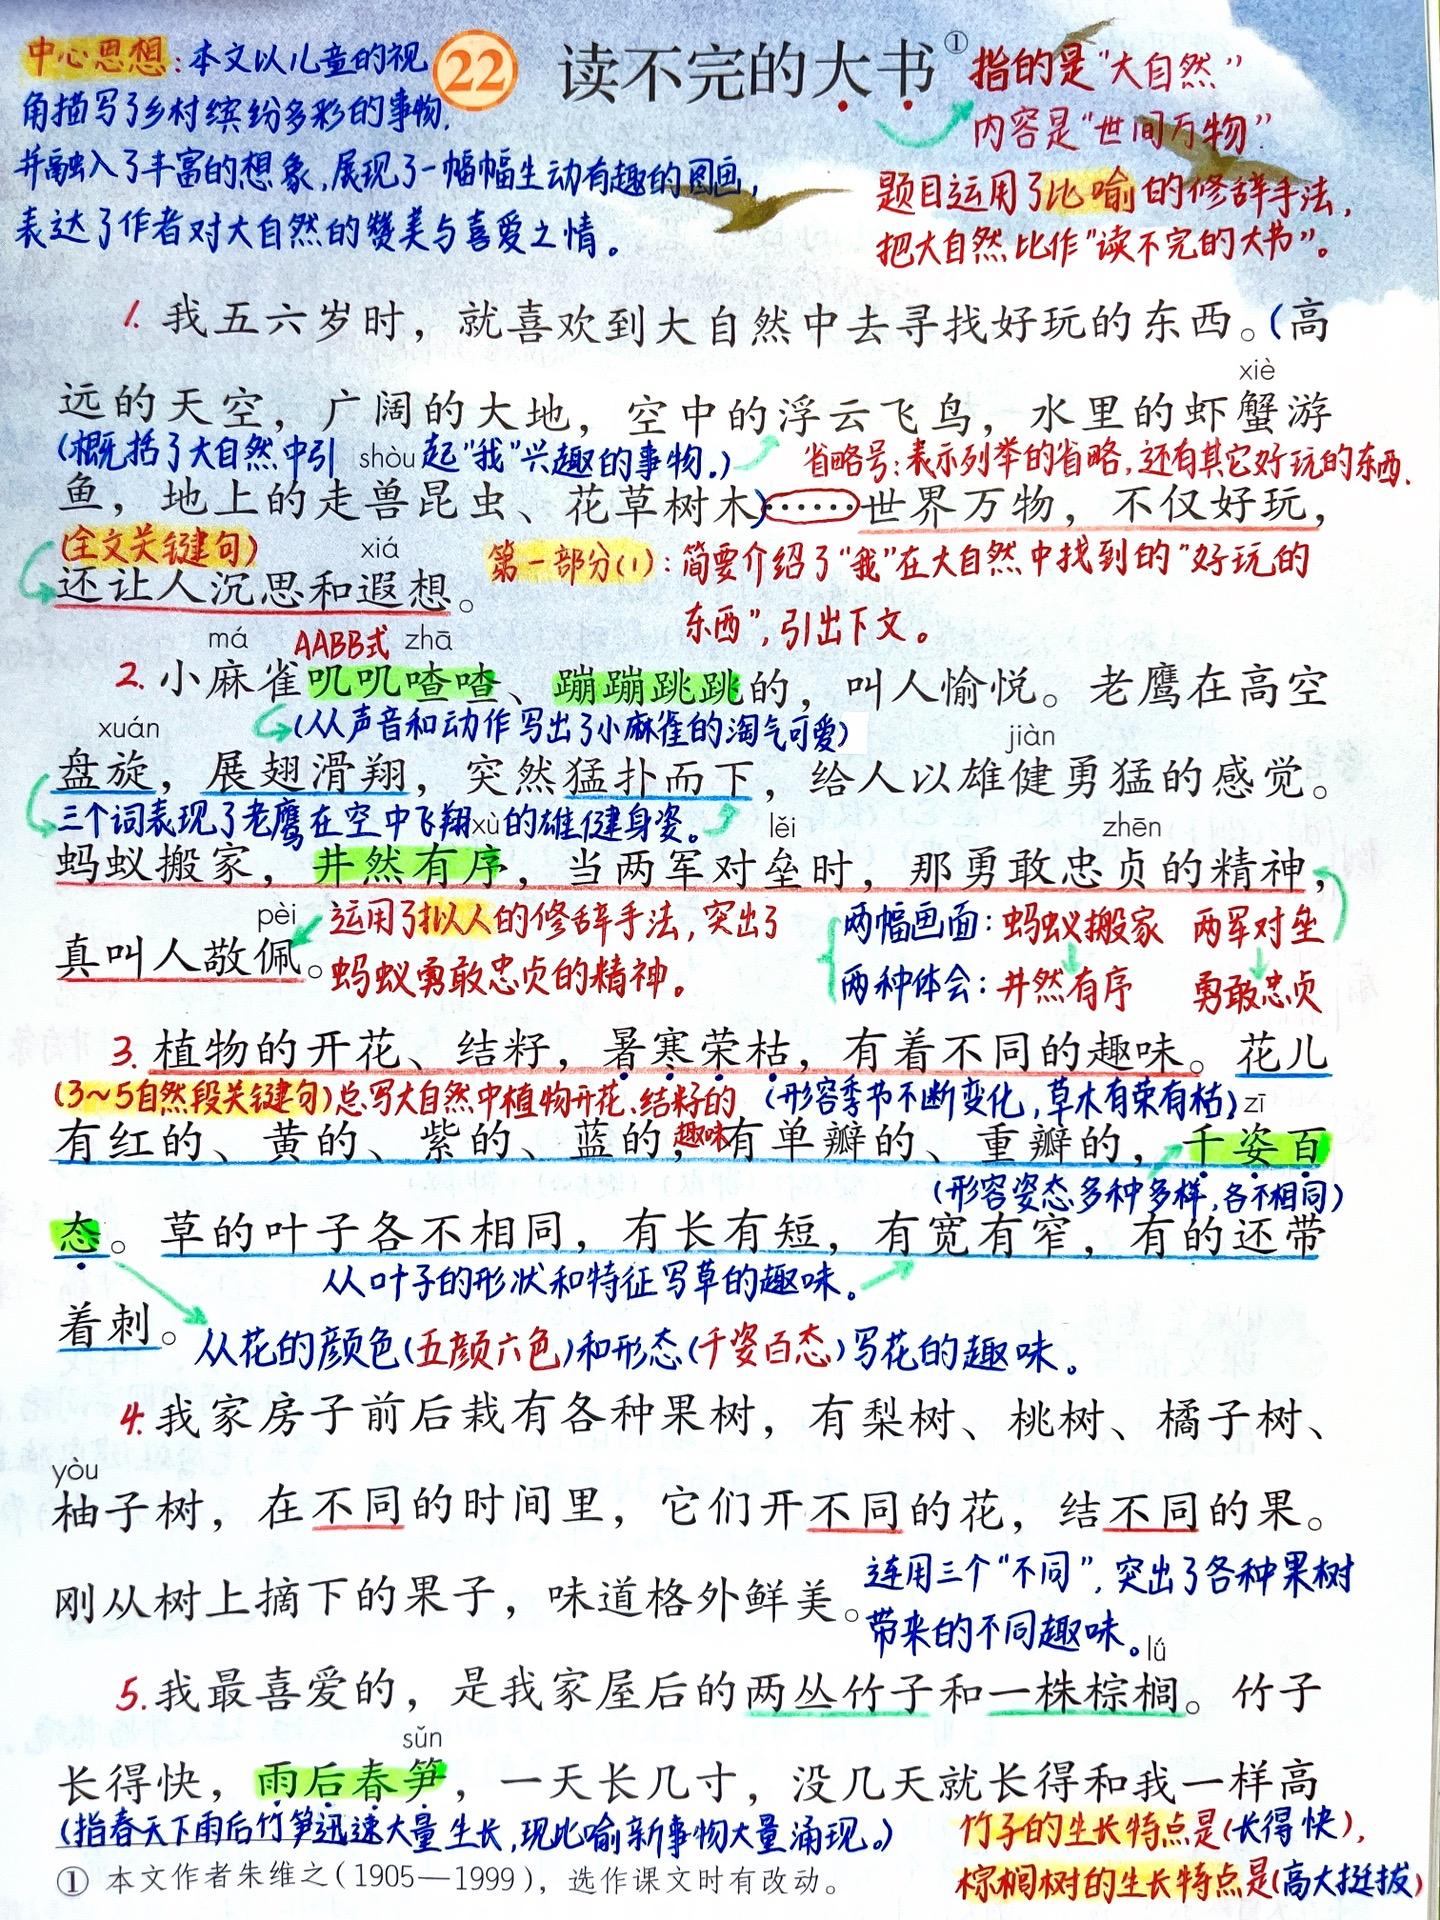 中心思想：本文以儿童的视
角描写了乡村缤纷多彩的事物，
并融入了丰富的想象，展现了一幅幅生动有趣的图画，
表达了作者对大自然的赞美与喜爱之情。
22 读不完的大书①
指的是“大自然”
内容是“世间万物”
题目运用了比喻的修辞手法，
把大自然比作“读不完的大书”。
1. 我五六岁时，就喜欢到大自然中去寻找好玩的东西。（高
xiè
远的天空，广阔的大地，空中的浮云飞鸟，水里的虾蟹游
（概括了大自然中引起“我”兴趣的事物。）
省略号：表示列举的省略，还有其它好玩的东西.
shòu
鱼，地上的走兽昆虫、花草树木）……世界万物，不仅好玩，
（全文关键句）
xiá
还让人沉思和遐想。
第一部分（1）：简要介绍了“我”在大自然中找到的“好玩的
东西”，引出下文。
má AABB式 zhā
2. 小麻雀叽叽喳喳、蹦蹦跳跳的，叫人愉悦。老鹰在高空
（从声音和动作写出了小麻雀的淘气可爱）
xuán jiàn
盘旋，展翅滑翔，突然猛扑而下，给人以雄健勇猛的感觉。
三个词表现了老鹰在空中飞翔的雄健身姿。
xù lěi zhēn
蚂蚁搬家，井然有序，当两军对垒时，那勇敢忠贞的精神，
pèi
真叫人敬佩。
运用了拟人的修辞手法，突出了
蚂蚁勇敢忠贞的精神。
两幅画面：蚂蚁搬家 两军对垒
两种体会：井然有序 勇敢忠贞
3. 植物的开花、结籽，暑寒荣枯，有着不同的趣味。花儿
（3~5自然段关键句）总写大自然中植物开花、结籽的
趣味
（形容季节不断变化，草木有荣有枯）
zī
有红的、黄的、紫的、蓝的，有单瓣的、重瓣的，千姿百
（形容姿态多种多样，各不相同）
态。草的叶子各不相同，有长有短，有宽有窄，有的还带
从叶子的形状和特征写草的趣味。
着刺。
从花的颜色（五颜六色）和形态（千姿百态）写花的趣味。
4. 我家房子前后栽有各种果树，有梨树、桃树、橘子树、
yòu
柚子树，在不同的时间里，它们开不同的花，结不同的果。
刚从树上摘下的果子，味道格外鲜美。
连用三个“不同”，突出了各种果树
带来的不同趣味。
lǘ
5. 我最喜爱的，是我家屋后的两丛竹子和一株棕榈。竹子
sǔn
长得快，雨后春笋，一天长几寸，没几天就长得和我一样高
（指春天下雨后竹笋迅速大量生长，现比喻新事物大量涌现。）
竹子的生长特点是（长得快），
棕榈树的生长特点是（高大挺拔）
① 本文作者朱维之（1905—1999），选作课文时有改动。